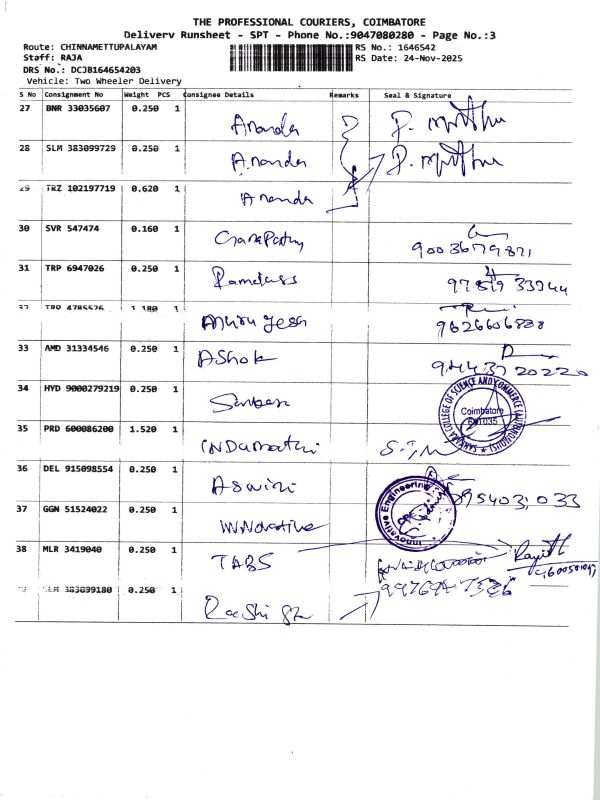 THE PROFESSIONAL COURIERS, COIMBATORE
Delivery Runsheet - SPT - Phone No.:9047080280 - Page No.:3
Route: CHINNAMETTUPALAYAM
RS No.: 1646542
Staff: RAJA
RS Date: 24-Nov-2025
DRS No.: DCJB164654203
Vehicle: Two Wheeler Delivery
S No Consignment No Weight PCS Consignee Details Remarks Seal & Signature
27 BNR 33035607 0.250 1 Ananda
28 SLM 383099729 0.250 1 Ananda
29 TRZ 102197719 0.620 1 Ananda
30 SVR 547474 0.160 1 Ganapathy 9003679871
31 TRP 6947026 0.250 1 Ramdass
32 TRP 4785576 1.180 1 Murugesh 9626606888
33 AMD 31334546 0.250 1 Ashok 9443720220
34 HYD 9000279219 0.250 1
SANKARA COLLEGE OF SCIENCE AND COMMERCE (AUTONOMOUS)
Coimbatore
641035
35 PRD 600086200 1.520 1 INDumathi
36 DEL 915098554 0.250 1 Aswini
37 GGN 51524022 0.250 1 INNovative
Innovative Engineering
CBE
38 MLR 3419040 0.250 1 TABS
SLM 383099180 0.250 1